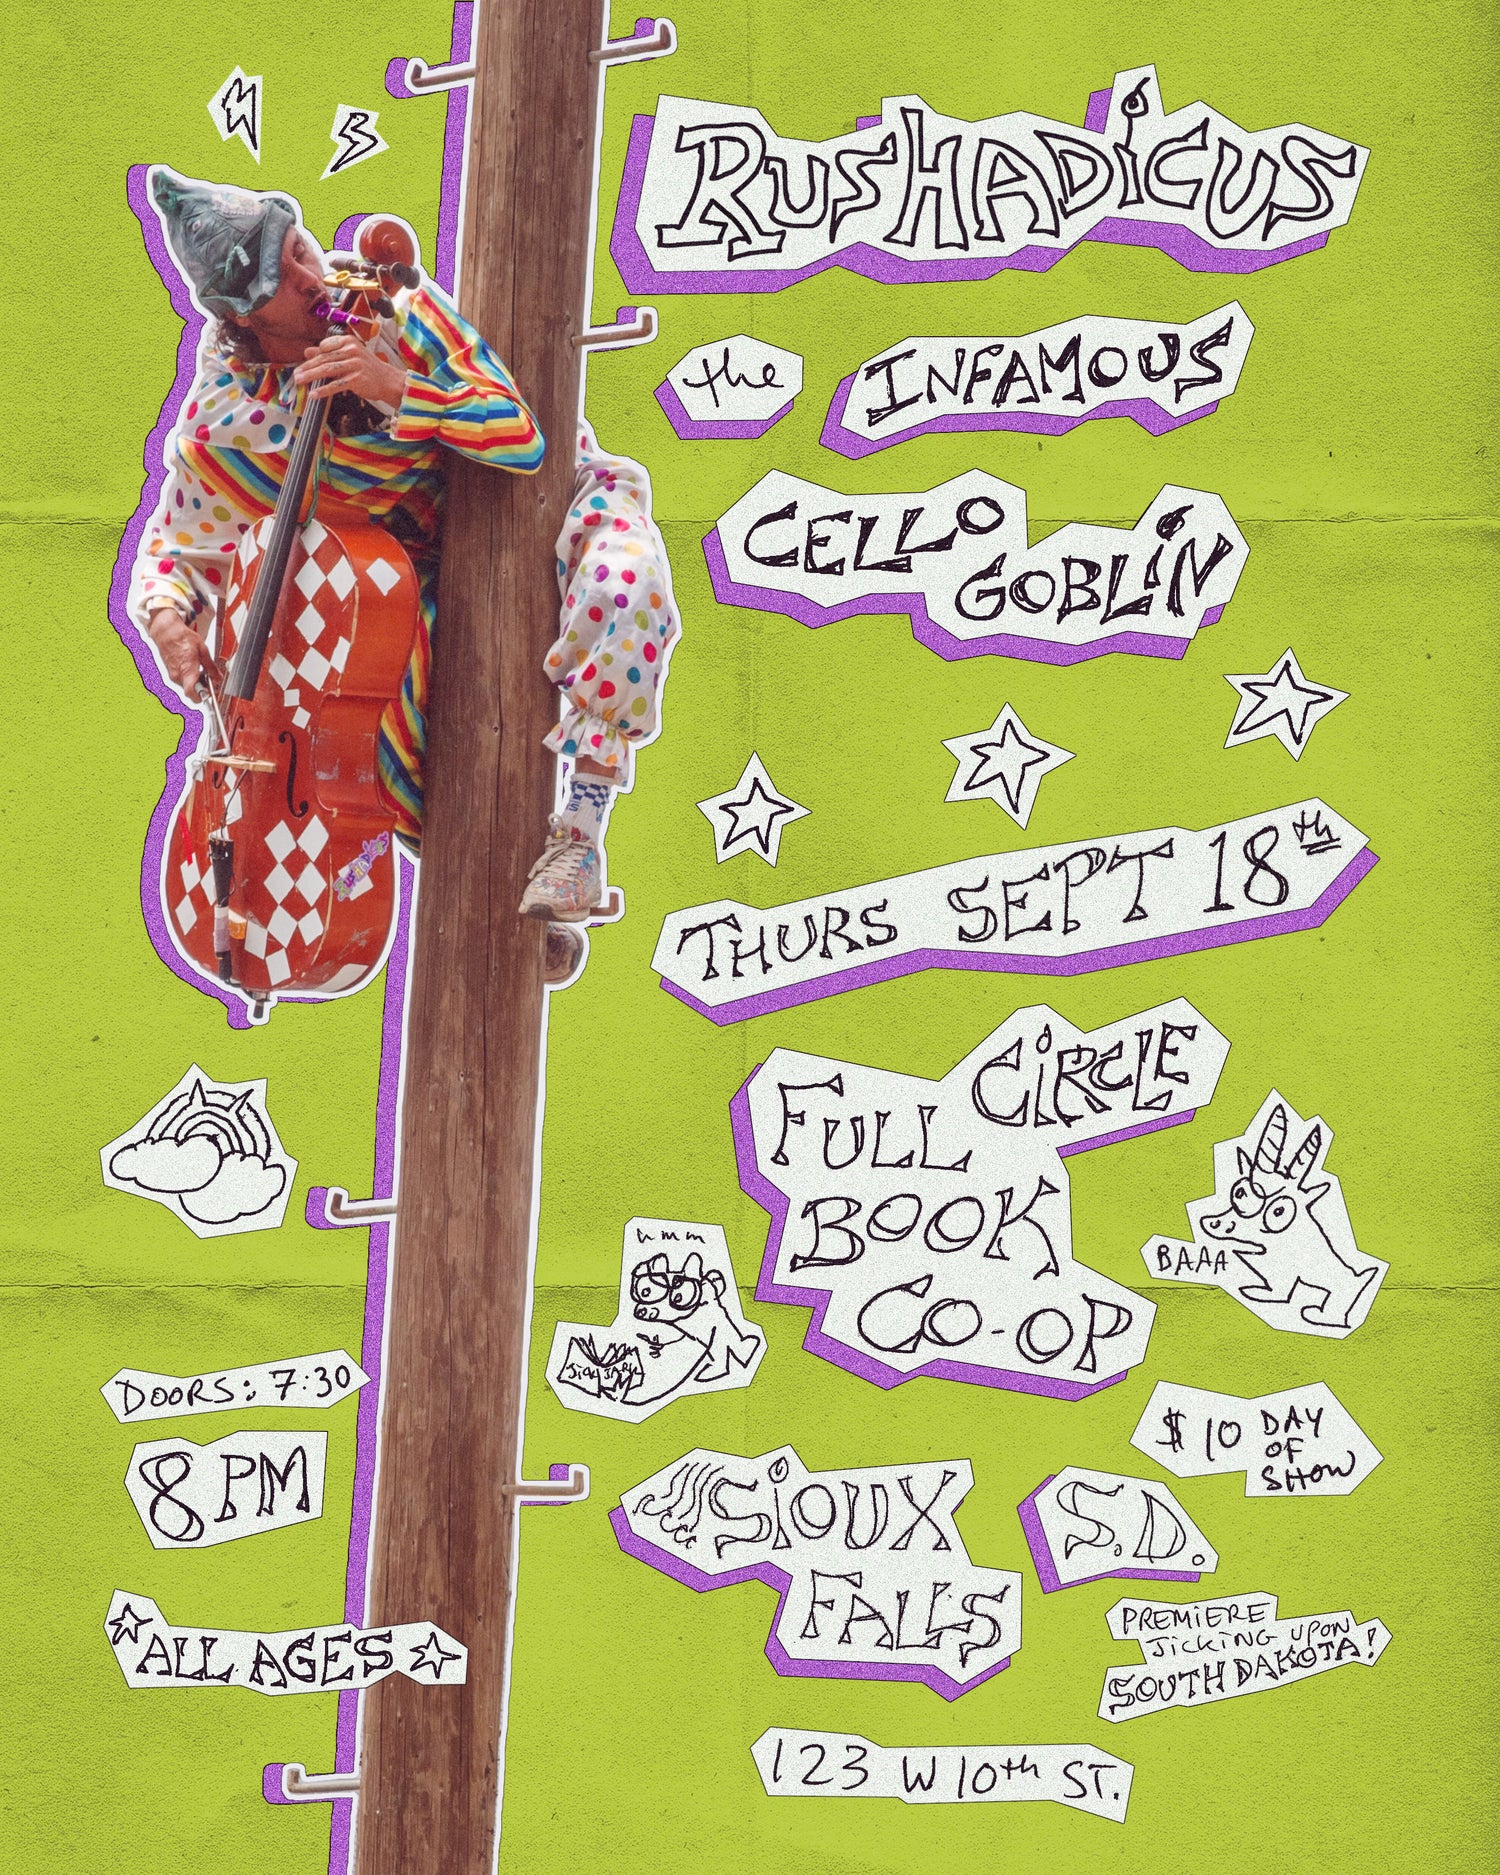 RUSHADiCUS
the INFAMOUS
CELLO
GOBLiN
THURS SEPT 18th
FULL CiRCLE
BOOK
CO-OP
BAAA
hmm
DOORS: 7:30
8 PM
$10 DAY
OF
SHOW
SiOUX S.D.
FALLS
ALL AGES
PREMiERE
JiCKiNG UPON
SOUTH DAKOTA!
123 W 10th ST.